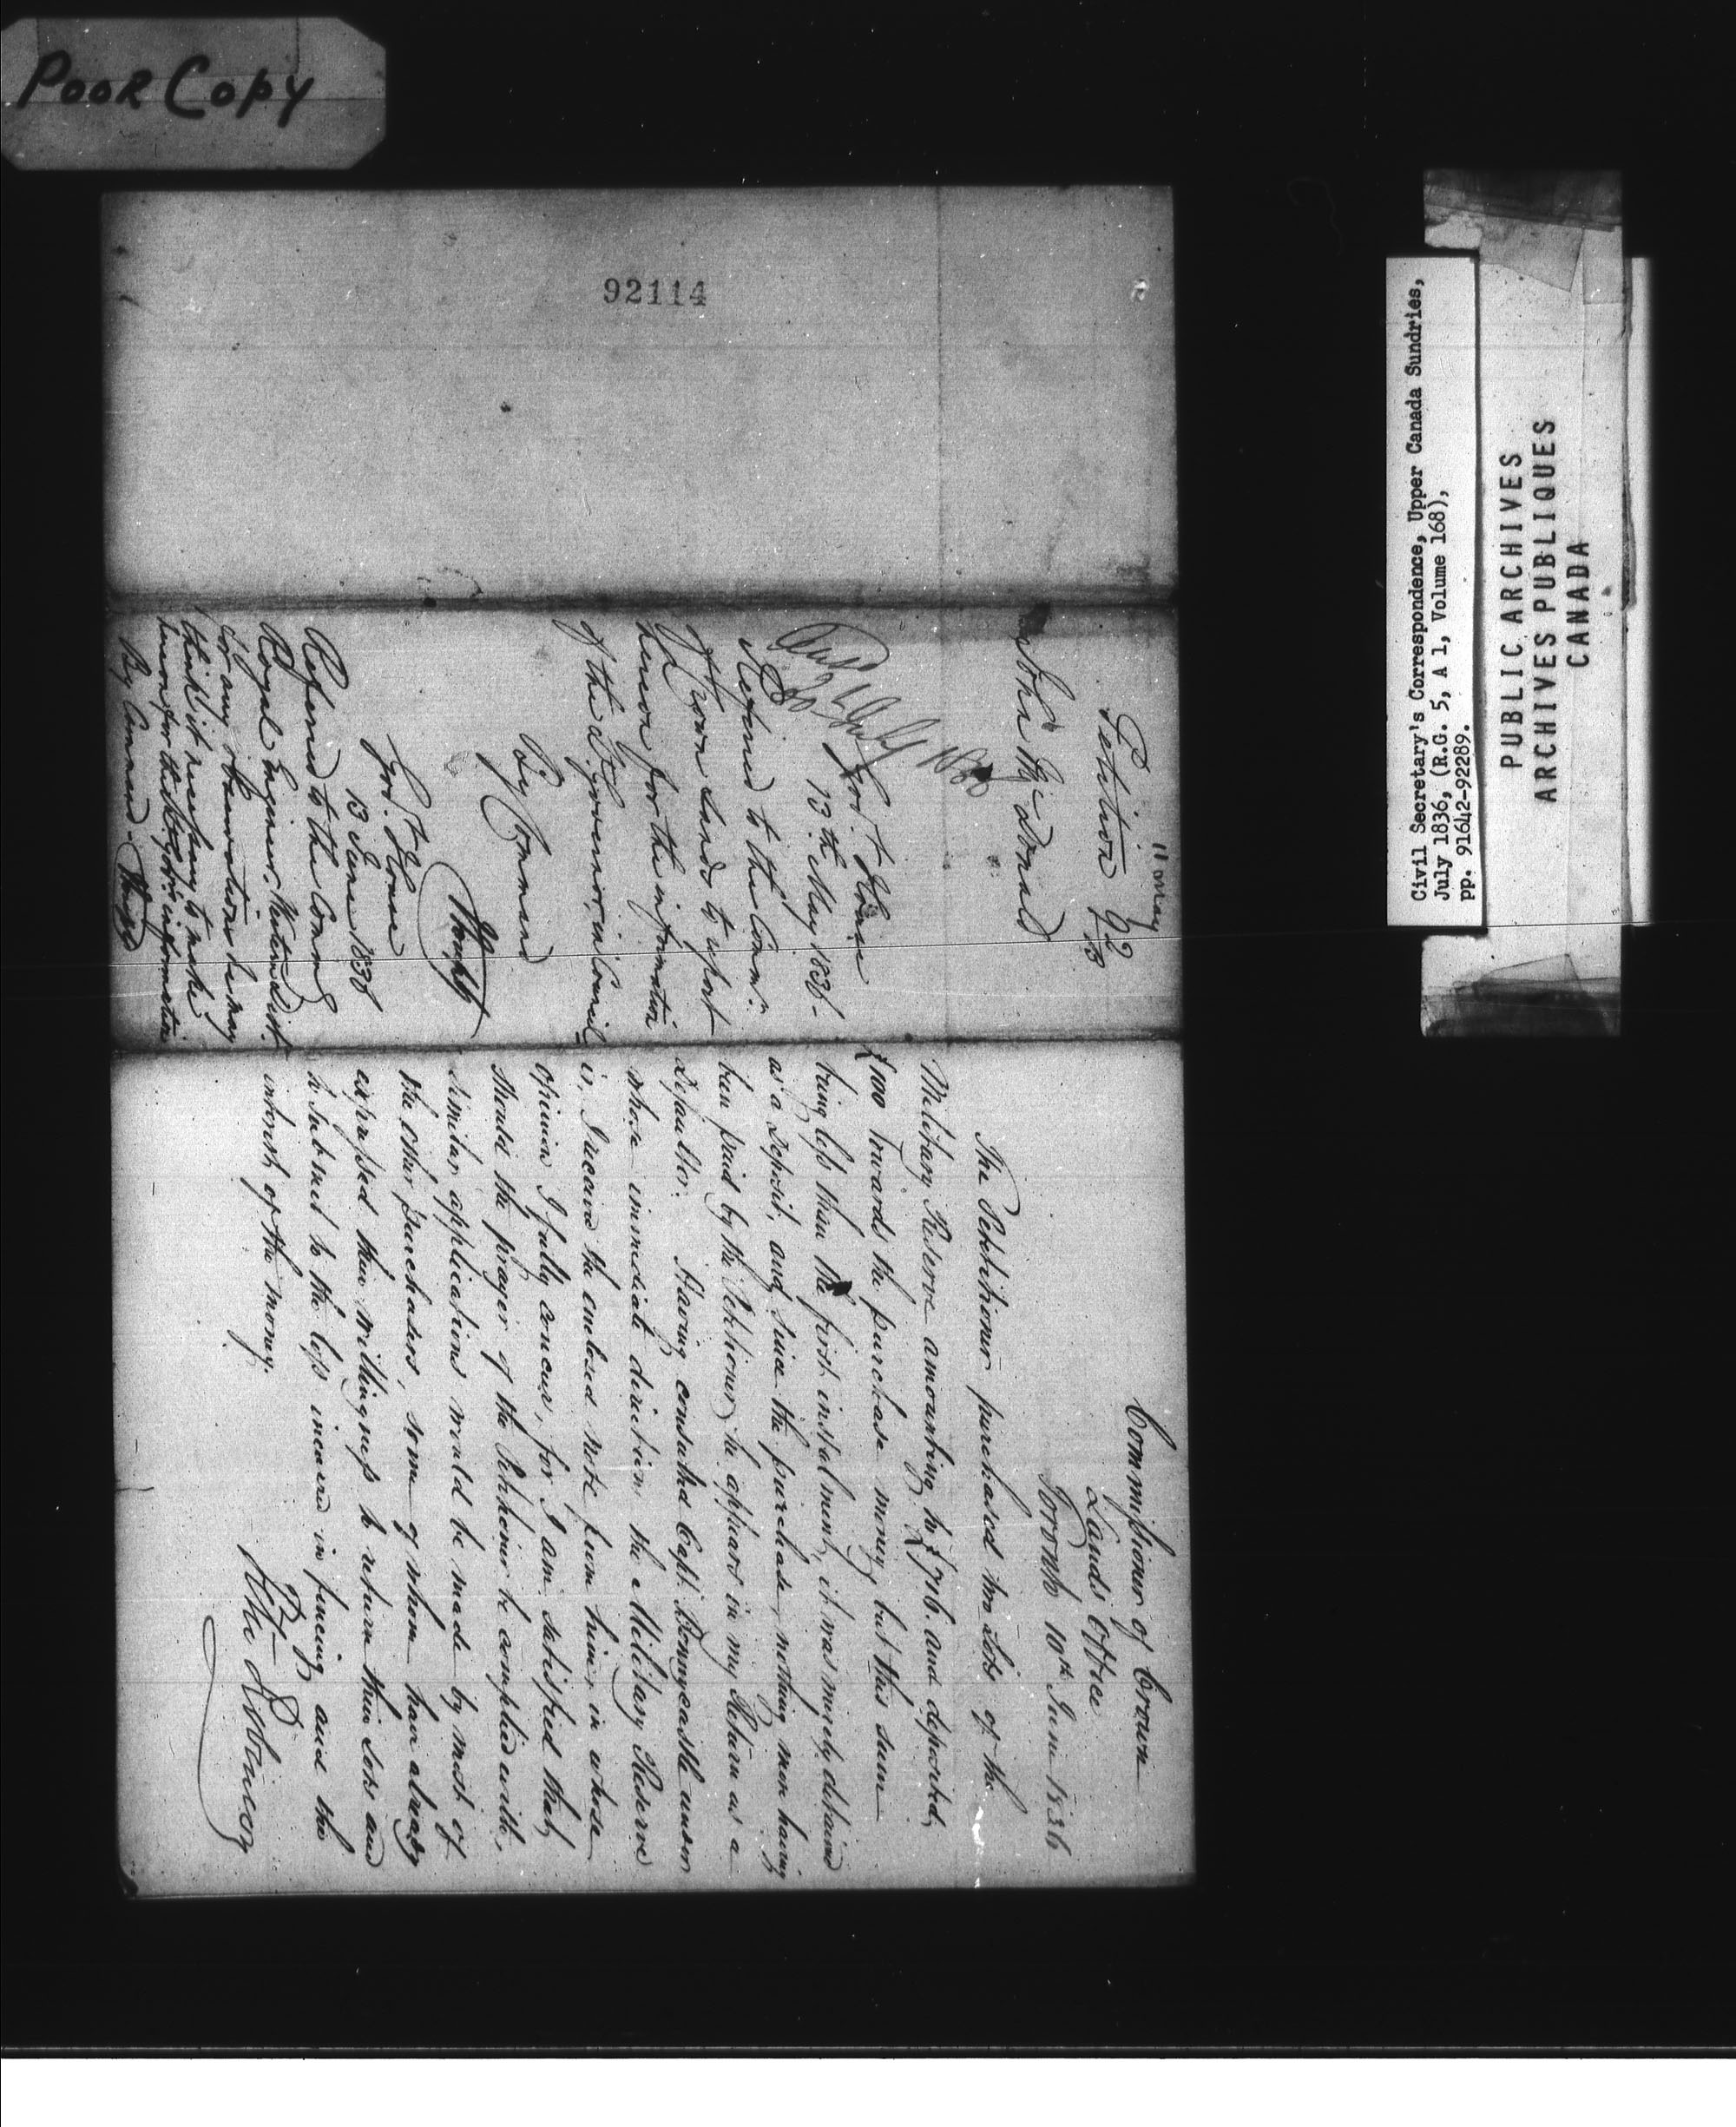 POOR COPY
92114
11 May
Petition 92
13
John McDonald
Govt. House
13th May 1836-
Referred to the Comr.
of Crown Lands to report
hereon for the information
of the Lt Governor, in Council
By Command
Govt. House
13 June 1836
Referred to the Comg
Royal Engineer,
for any observations he may
think it necessary to make
hereon for the information
By Command
Commissioner of Crown
Lands Office
Toronto 10th June 1836
The Petitioner purchased two Lots of the
Military Reserve amounting to £716. and deposited,
£100 towards the purchase money, but this sum
being less than the first instalment, it was merely detained
as a Deposit, and, since the purchase, nothing more having
been paid by the Petitioner, he appears in my Return as a
Defaulter. Having consulted Capt. Bonnycastle under
whose immediate direction the Military Reserve
is, I received the enclosed note from him, in whose
opinion I fully concur, for I am satisfied that,
should the prayer of the Petitioner be complied with,
similar applications would be made by most of
the other purchasers, some of whom have already
expressed their willingness to return their Lots and
to submit to the loss incurred in fencing and the
interest of the money.
P. B.
Robinson
Civil Secretary's Correspondence, Upper Canada Sundries,
July 1836, (R.G. 5, A 1, Volume 168),
pp. 91642-92289.
PUBLIC ARCHIVES
ARCHIVES PUBLIQUES
CANADA